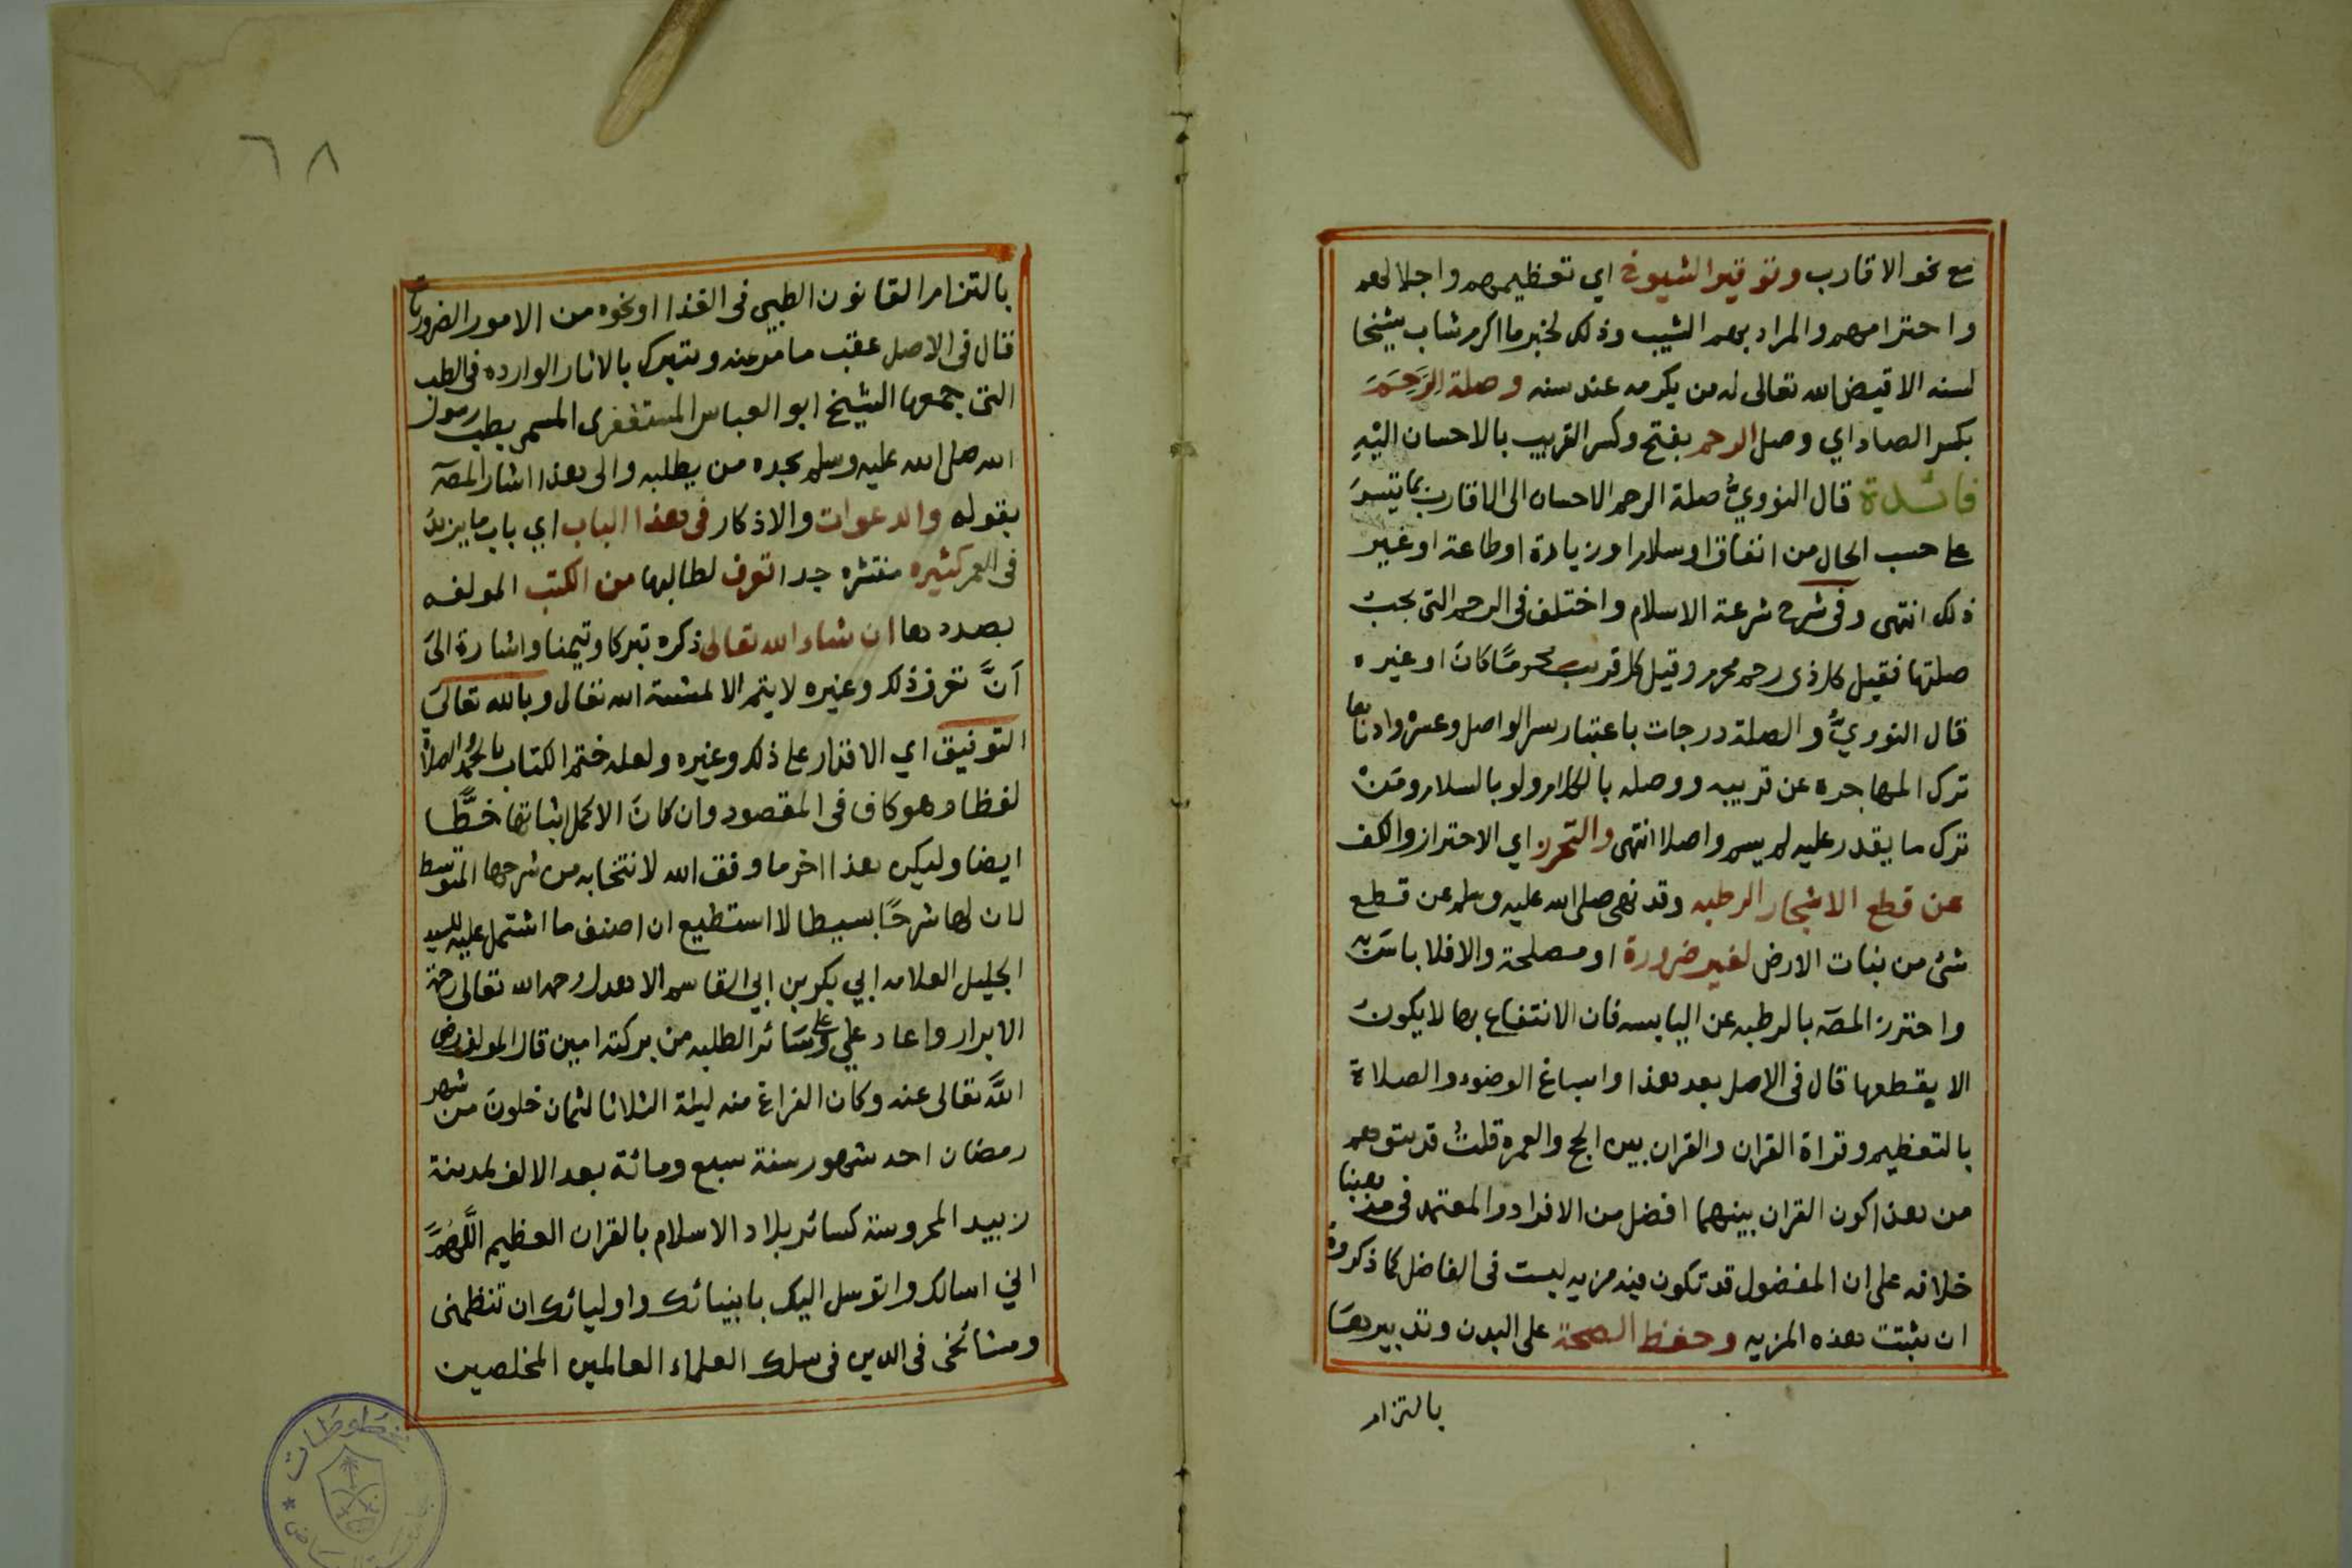 مع نحو الاقارب وتوقير الشيوخ اي تعظيمهم واجلالهم
واحترامهم والمراد بهم الشيب وذلك لخبر ما اكرم شاب شيخا
لسنه الا قيض الله تعالى له من يكرمه عند سنه وصلة الرَّحِمَ
بكسر الصاد اي وصل الرحم بفتح وكسر القريب بالاحسان اليْهِ
فائدة قال النوويُّ صلة الرحم الاحسان الى الاقارب بما يتيسر
على حسب الحال من انفاق او سلام او زيارة او طاعة او غير
ذلك انتهى وفي شرح شرعة الاسلام واختلف في الرحم التي يجب
صلتها فقيل كل ذى رحم محرم وقيل كل قريب محرمًا كانَ او غيره
قال النوويُّ والصلة درجات باعتبار يسر الواصل وعسره وادناها
ترك المهاجرة عن قريبه ووصله بالكلام ولو بالسلام ومَنْ
ترك ما يقدر عليه لم يسم واصلا انتهى والتحرز اي الاحتراز والكف
عن قطع الاشجار الرطبه وقد نهى صلى الله عليه وسلم عن قطع
شئ من نبات الارض لغير ضرورة او مصلحة والا فلا باسَ به
واحترز المصَ بالرطبه عن اليابسه فان الانتفاع بها لا يكونُ
الا يقطعها قال في الاصل بعد هذا واسباغ الوضوء والصلاة
بالتعظيم وقراة القران والقران بين الحج والعمره قلتُ قد يتوهم
من هذا كون القران بينهما افضل من الافراد والمعتمد في مذهبنا
خلافه على ان المفضول قد تكون فيه مزيه ليست في الفاضل كما ذكروه
ان ثبتت هذه المزيه وحفظ الصحة على البدن وتدبيرهَا
بالتزام
٦٨
بالتزام القانون الطبي في الغذا او نحوه من الامور الضروريات
قال في الاصل عقب ما مر عنه ويتبرك بالاثار الوارده في الطب
التى جمعها الشيخ ابو العباس المستغفرى المسمى بطب رسول
الله صلى الله عليه وسلم يجده من يطلبه والى هذا اشار المصَ
بقوله والدعوات والاذكار في هذا الباب اي باب ما يزيدُ
في العمر كثيره منتشره جدا تعرف لطالبها من الكتب المولفه
بصددها ان شاء الله تعالى ذكره تبركا وتيمنا واشارة الىَ
اَنَّ تعرف ذلك وغيره لا يتم الا لمشئة الله تعالى وبالله تعالىَ
التوفيق اي الاقدار على ذلك وغيره ولعله ختم الكتاب بالحمد والصلاة
لفظا وهو كاف في المقصود وان كانَ الاكمل اثباتها خطَّا
ايضا وليكن هذا اخر ما وفق الله لانتخابه من شرحها المتوسط
لان لها شرحًا بسيطا لا استطيع ان اصنف ما اشتمل عليه للسيد
الجليل العلامه ابي بكر بن ابي القاسم الاهدل رحمه الله تعالى رحمة
الابرار واعاد علي وعلى سَائر الطلبه من بركته امين قال المولف رضى
اللَّه تعالى عنه وكان الفراغ منه ليلة الثلاثا لثمان خلونَ من شهر
رمضان احد شهور سنة سبع ومائة بعد الالف لمدينة
زبيد المحروسة كسائر بلاد الاسلام بالقران العظيم اللَّهُمَّ
اني اسالك واتوسل اليك بانبيائك واوليائك ان تنظمنى
ومشائخى في الدين في سلك العلماء العالمين المخلصين
مخطوطات